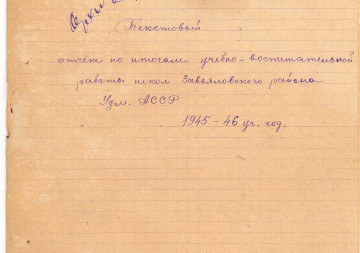 Текстовый
отчёт по итогам учебно-воспитательной
работы школ Завьяловского района
Удм. АССР
1945-46 уч. год.